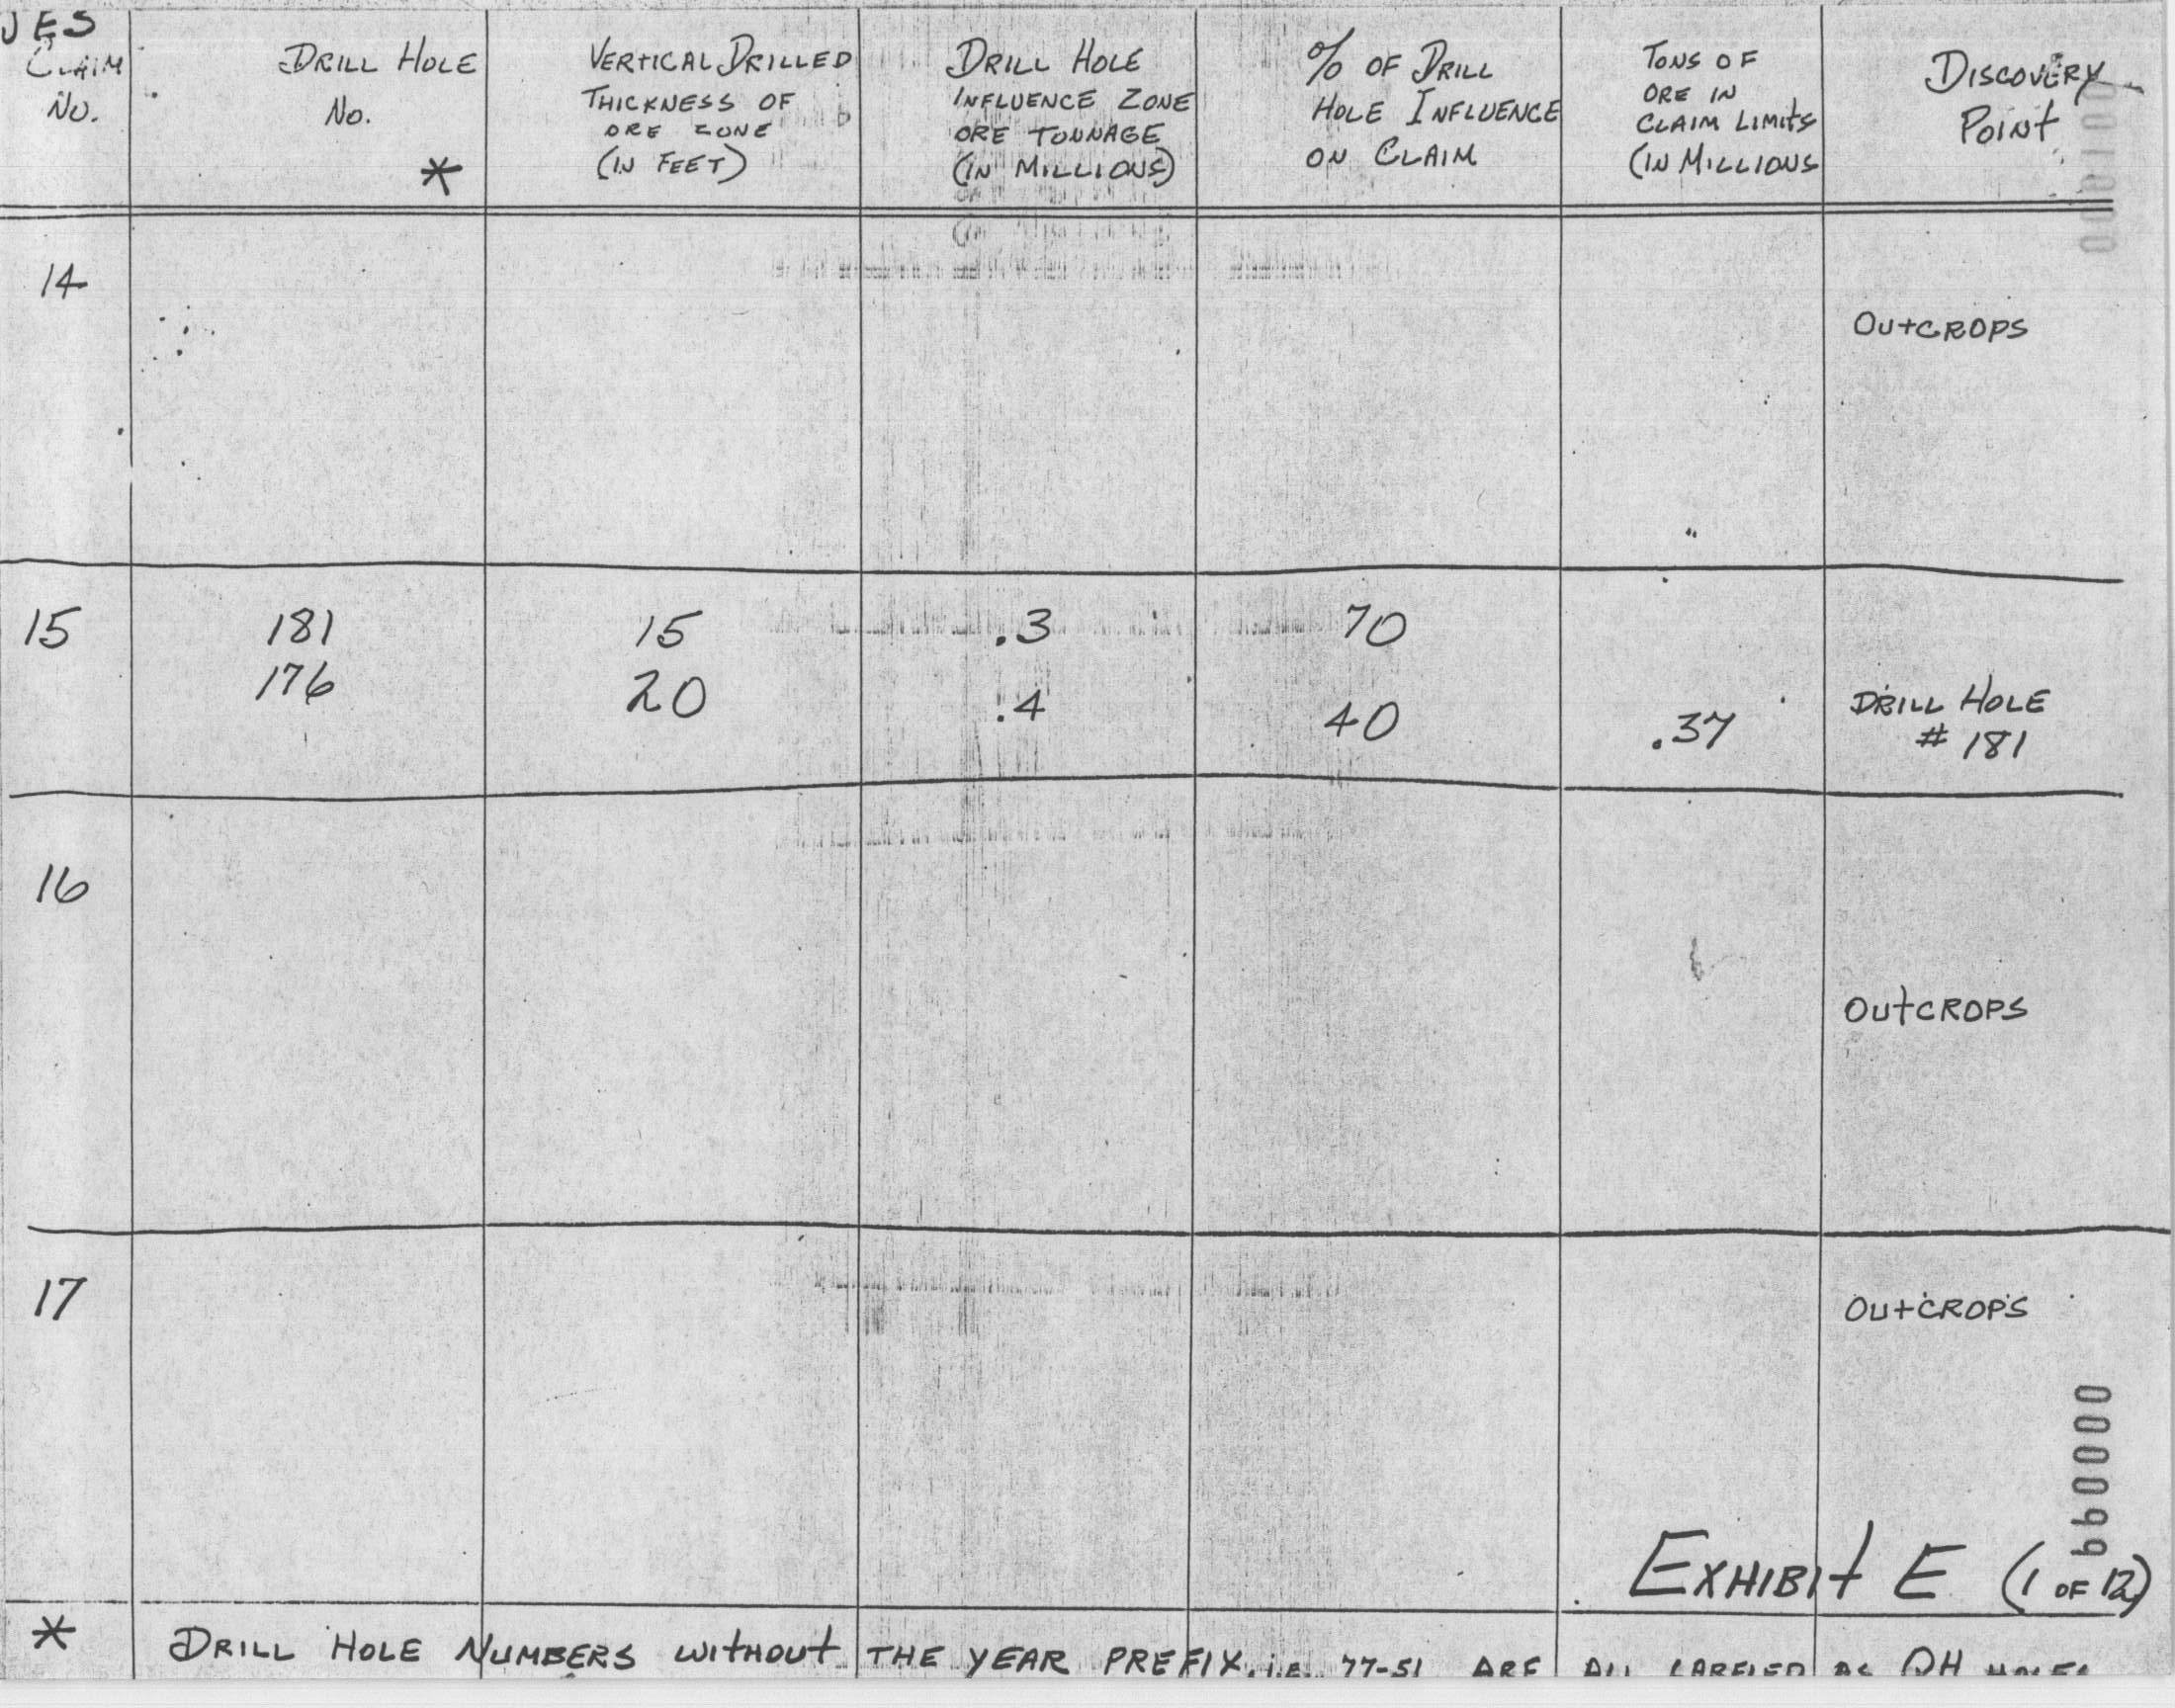 JES
CLAIM NO.
DRILL HOLE NO. *
VERTICAL DRILLED THICKNESS OF ORE ZONE (IN FEET)
DRILL HOLE INFLUENCE ZONE ORE TONNAGE (IN MILLIONS)
% OF DRILL HOLE INFLUENCE ON CLAIM
TONS OF ORE IN CLAIM LIMITS (IN MILLIONS
DISCOVERY POINT
14 OUTCROPS
15 181 15 .3 70
176 20 .4 40 .37 DRILL HOLE # 181
16 OUTCROPS
17 OUTCROPS
000099
EXHIBIT E (1 OF 12)
* DRILL HOLE NUMBERS WITHOUT THE YEAR PREFIX, i.e. 77-51 ARE ALL LABELED AS DH HOLES